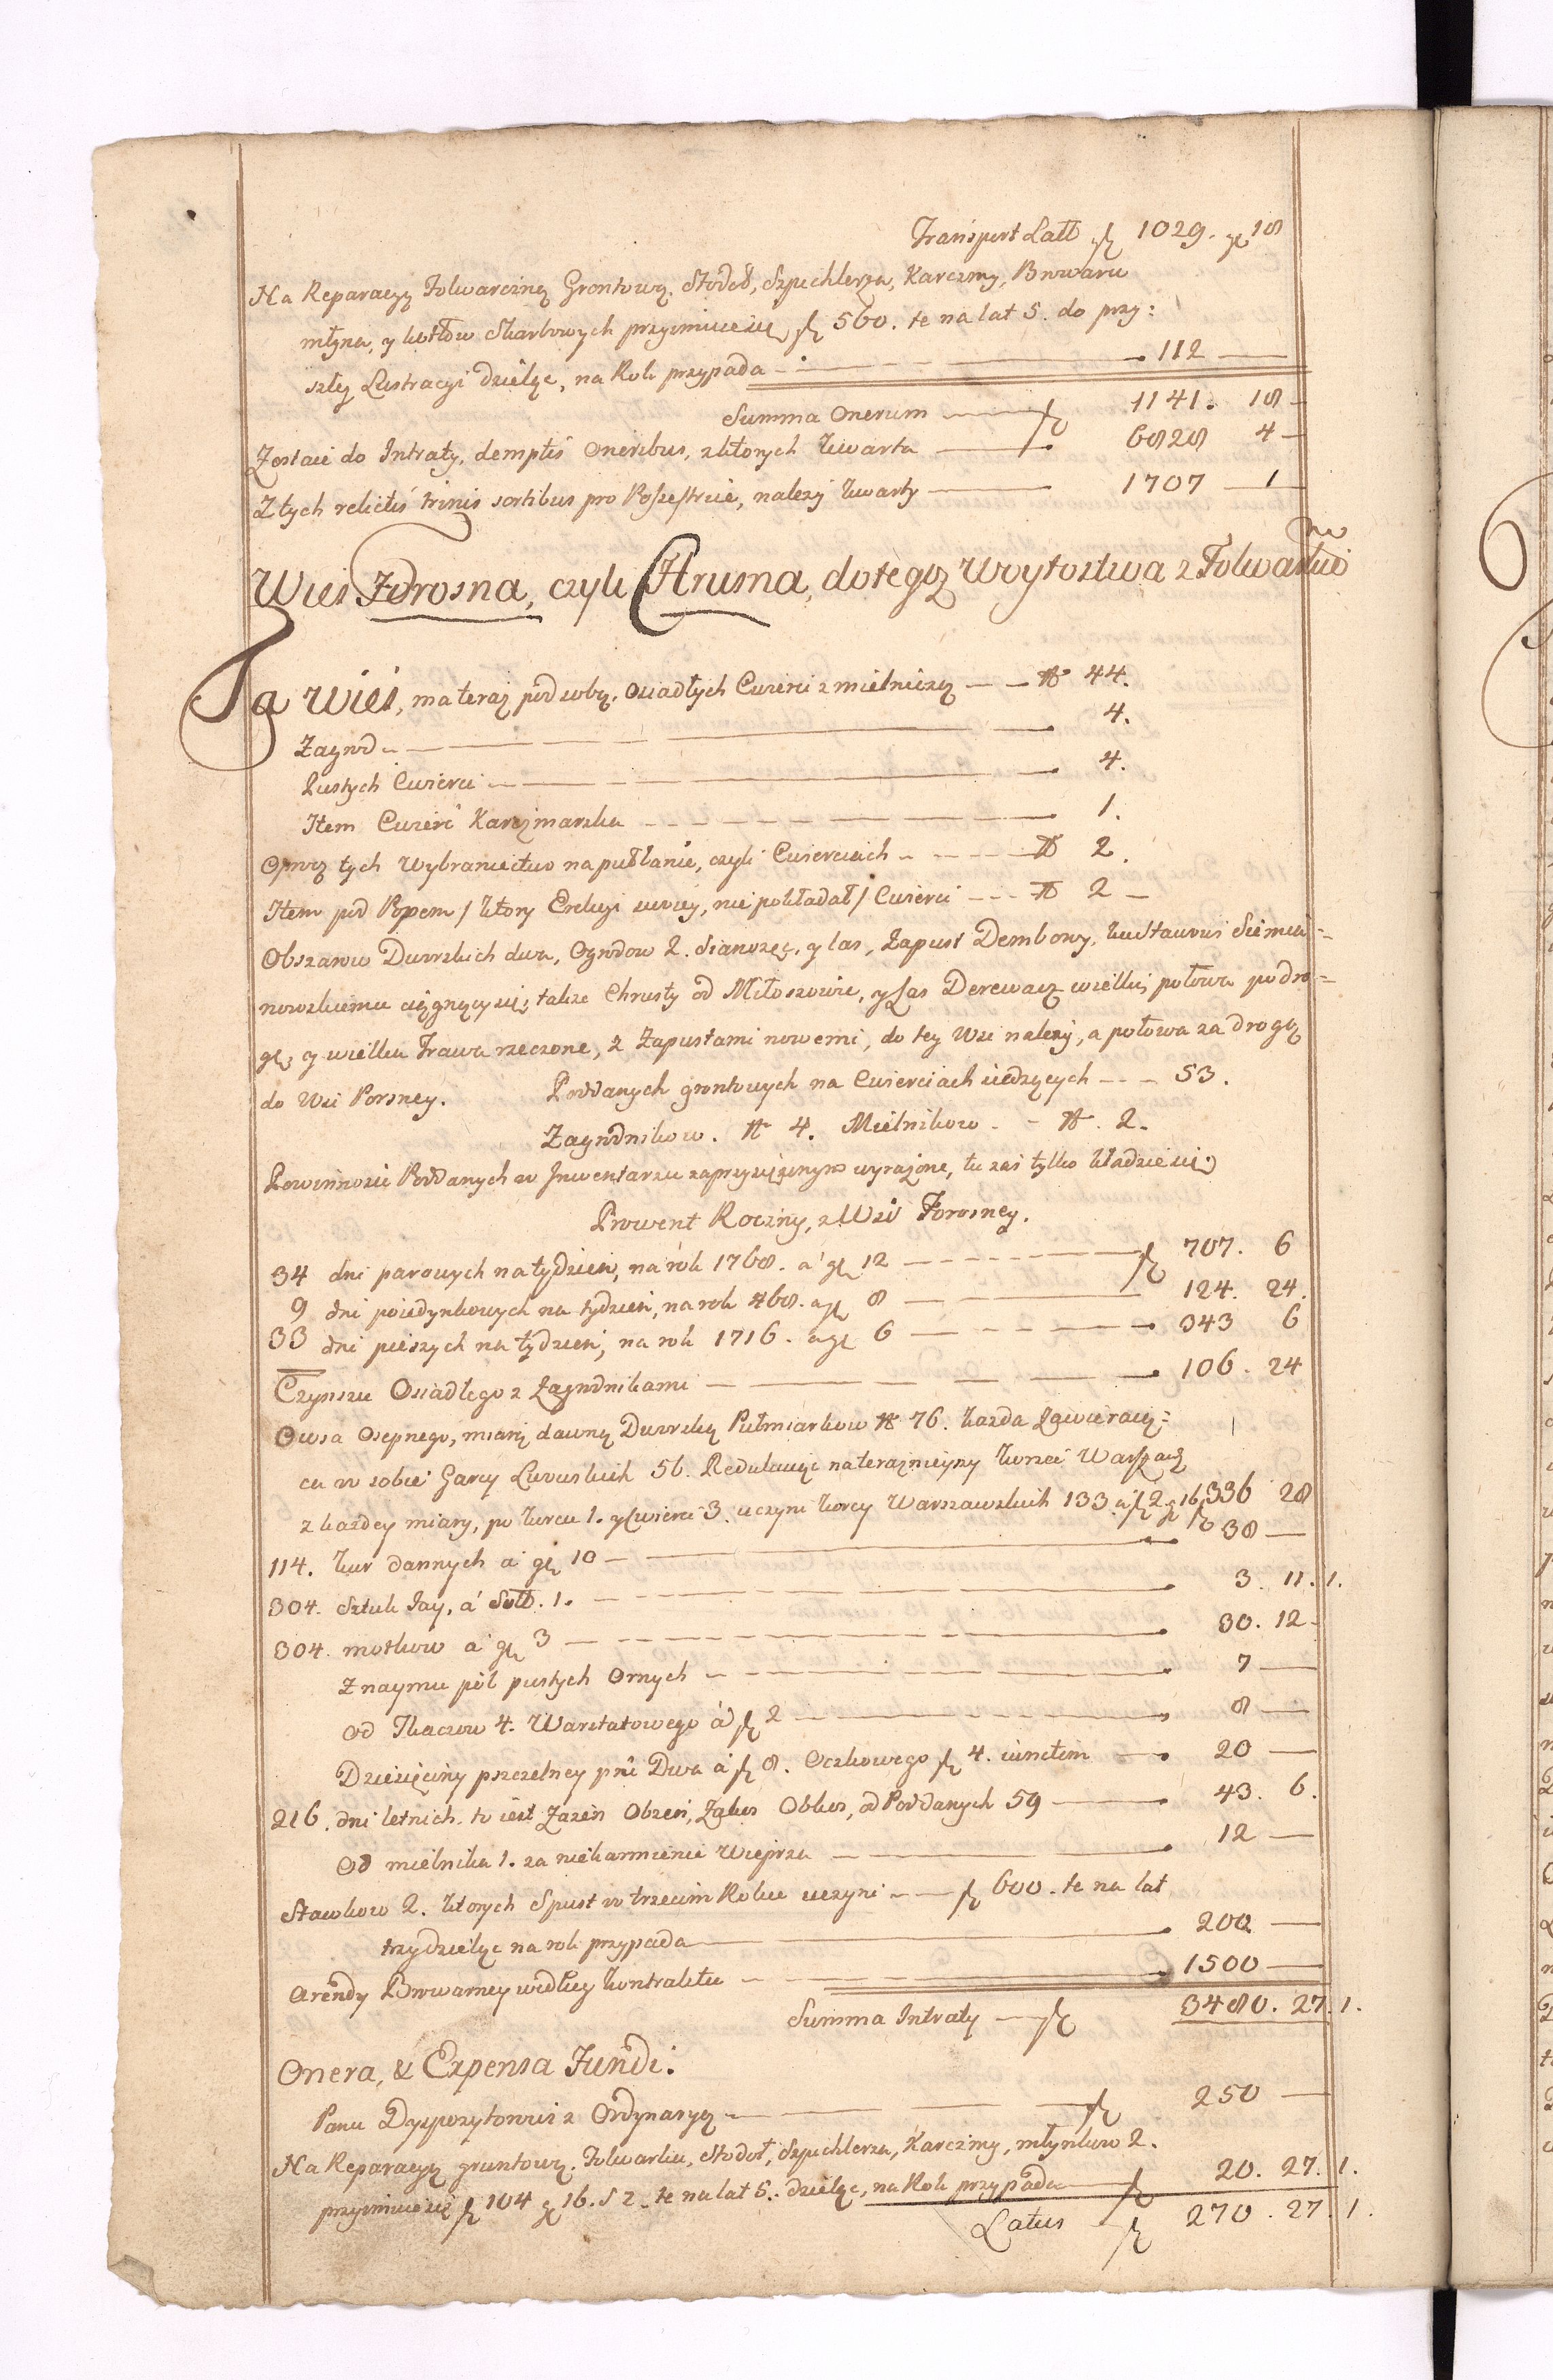 Transport Latt fl 1029. gr 18
Na Reparacyą Folwarczną Grontową. Stodół, Szpichlerza, Karczmy, Browaru
młyna, y kotłow Skarbowych przyimuie się fl 560. te na lat 5. do przy:
szłey Lustracyi dzieląc, na Rok przypada 112
Summa Onerum fl 1141. 18
Zostaie do Intraty, demptis Oneribus, z ktorych kwarta 6828 4
Z tych relictis trinis sortibus pro Possessore, należy kwarty 1707 1
Wies Forosna, czyli Hruma, do tegoż Woytostwa z Folwarkiem
Ta Wieś, ma teraz pod sobą. Osiadłych Cwierci z mielniczą N 44.
Zagrod 4.
Pustych Cwierci 4.
Item Cwierć Karczmarska 1.
Oprocz tych Wybraniectwo na pułłanie, czyli Cwierciach N 2.
Item pod Popem / ktory Erekcyi swoiey, nie pokładał / Cwierci N 2
Obszarow Dworskich dwa, Ogrodow 2. Sianożęć, y las, Zapust Dembowy, ku Stawowi Siemia-
nowskiemu ciągnący się; także Chrusty od Miłoszowic, y Las Derewacz wielki, połowa po dro-
gę, y wielka Trawa rzeczone, z Zapustami nowemi, do tey Wsi należy, a połowa za drogą
do Wsi Porsney. Poddanych grontowych na Cwierciach siedzących 53.
Zagrodnikow. N 4. Mielnikow N. 2.
Powinnosci Poddanych w Inwentarzu zaprzysiężonym wyrażone, tu zaś tylko kładzie się:
Prowent Roczny, z Wsi Forosney.
34 dni parowych na tydzień, na rok 1768. a gr 12 fl 707. 6
9 dni poiedynkowych na tydzień, na rok 468. a gr 8 124. 24.
33 dni pieszych na tydzień, na rok 1716. a gr 6 343 6
Czynszu Osiadłego z Zagrodnikami 106. 24
Owsa Osepnego, miarą dawną Dworską Pułmiarkow N 76. każda zawieraią:
ca w sobie Garcy Lwowskich 56. Redukuiąc na teraznieyszy korzec Warszaw:
z każdey miary, po korcu 1. y Cwierci 3. uczyni korcy Warszawskich 133 a fl 2 gr 16 fl 336 28
114. kur dannych a gr 10 38
304. Sztuk Jay, á Soll. 1. 3. 11. 1.
304. motkow a gr 3 30. 12
Z naymu pól pustych Ornych 7
Od Tkaczow 4. Warstatowego á fl 2 8
Dziesięciny pszczelney pni Dwa a fl 8. Oczkowego fl 4. cum 20
216. dni letnich. to iest Zażen Obżen, Zakos Obkos, od Poddanych 59 43. 6.
Od mielnika 1. za niekarmienie Wieprza 12
Stawkow 2. ktorych Spust w trzecim Roku uczyni fl 600. te na lat
trzy dzieląc na rok przypada 200
Arendy Browarney według kontraktu 1500
Summa Intraty fl 3480. 27. 1.
Onera, & Expensa Fundi:
Panu Dyspozytorowi z Ordynaryą fl 250
Na Reparacyą gruntową. Folwarku, Stodoł, Szpichlerza, Karczmy, młynkow 2.
przyimuie się fl 104 gr 16. S 2. te na lat 5. dzieląc, na Rok przypada fl 20. 27. 1.
Latus fl 270. 27. 1.